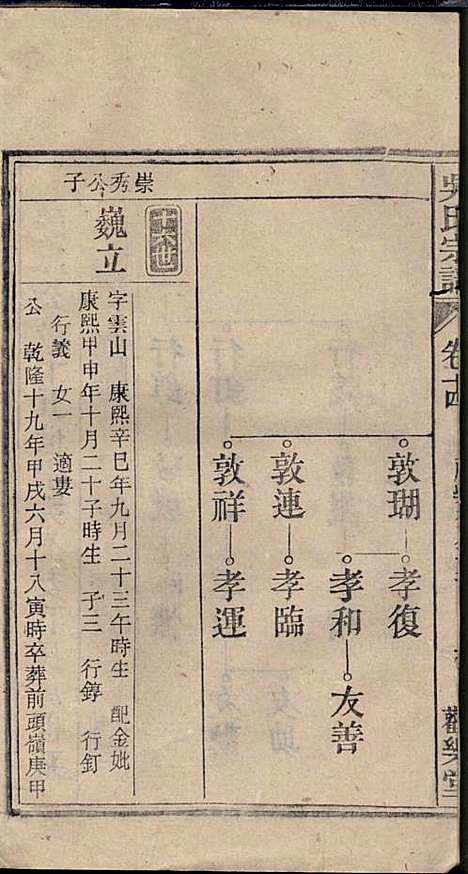 吳氏宗譜
卷十四
觀樂堂
敦瑚 孝復
孝和 友善
敦連 孝臨
敦祥 孝運
世
崇秀公子
巍立
字雲山 康熙辛巳年九月二十三午時生 配金妣
康熙甲申年十月二十子時生 子三 行錞 行釘
行義 女一 適婁
公 乾隆十九年甲戌六月十八寅時卒葬前頭嶺庚甲